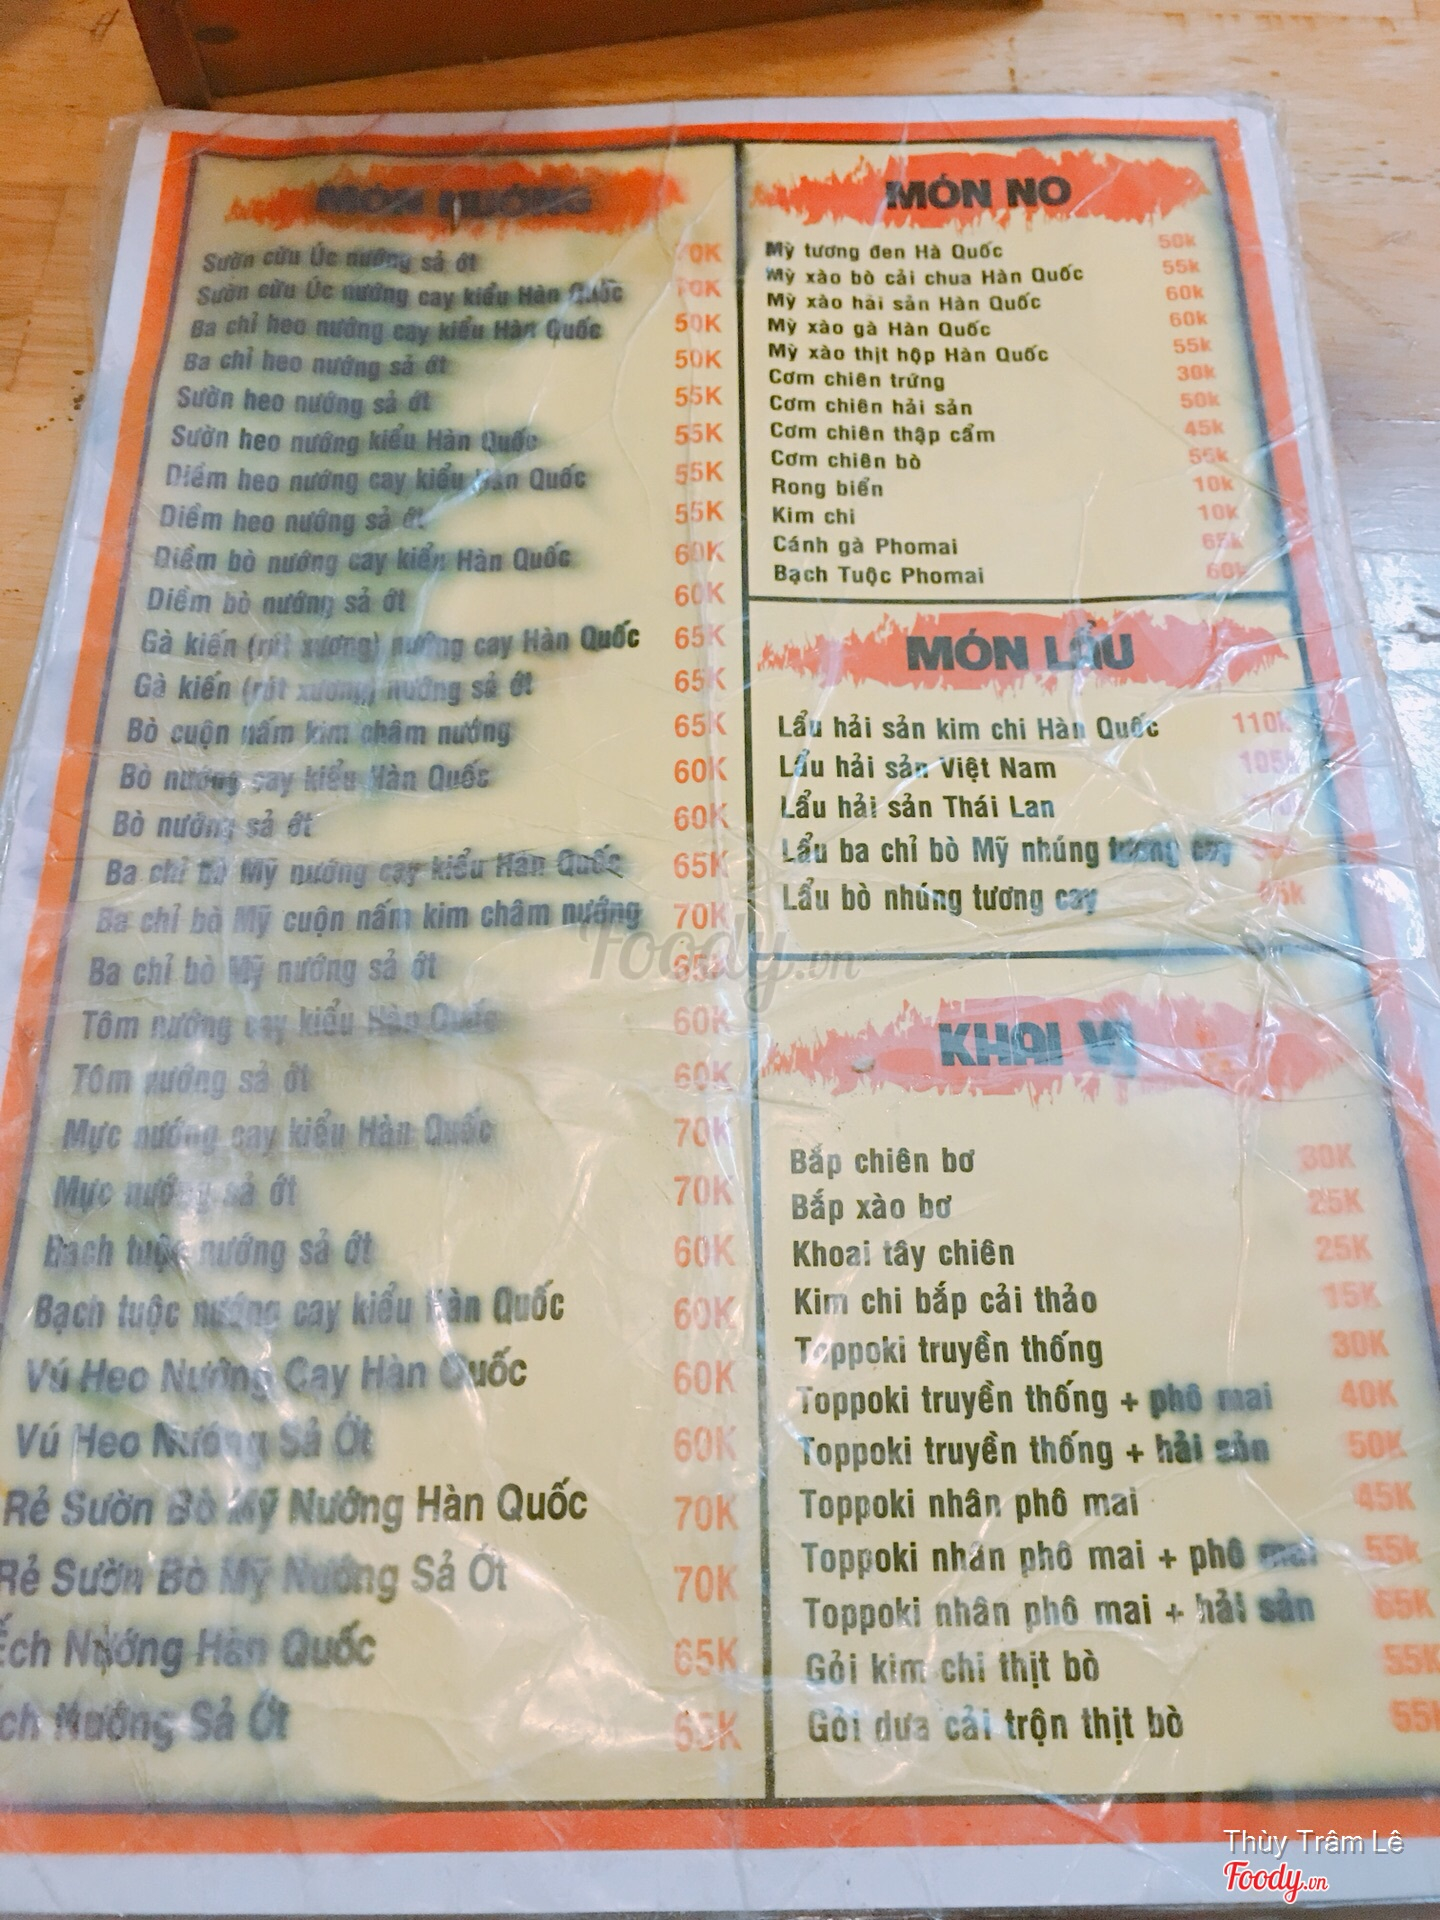 MÓN NƯỚNG
Sườn cừu Úc nướng sả ớt 70K
Sườn cừu Úc nướng cay kiểu Hàn Quốc 70K
Ba chỉ heo nướng cay kiểu Hàn Quốc 50K
Ba chỉ heo nướng sả ớt 50K
Sườn heo nướng sả ớt 55K
Sườn heo nướng kiểu Hàn Quốc 55K
Diềm heo nướng cay kiểu Hàn Quốc 55K
Diềm heo nướng sả ớt 55K
Diềm bò nướng cay kiểu Hàn Quốc 60K
Diềm bò nướng sả ớt 60K
Gà kiến (rút xương) nướng cay Hàn Quốc 65K
Gà kiến (rút xương) nướng sả ớt 65K
Bò cuộn nấm kim châm nướng 65K
Bò nướng cay kiểu Hàn Quốc 60K
Bò nướng sả ớt 60K
Ba chỉ bò Mỹ nướng cay kiểu Hàn Quốc 65K
Ba chỉ bò Mỹ cuộn nấm kim châm nướng 70K
Ba chỉ bò Mỹ nướng sả ớt 65K
Tôm nướng cay kiểu Hàn Quốc 60K
Tôm nướng sả ớt 60K
Mực nướng cay kiểu Hàn Quốc 70K
Mực nướng sả ớt 70K
Bạch tuộc nướng sả ớt 60K
Bạch tuộc nướng cay kiểu Hàn Quốc 60K
Vú Heo Nướng Cay Hàn Quốc 60K
Vú Heo Nướng Sả Ớt 60K
Rẻ Sườn Bò Mỹ Nướng Hàn Quốc 70K
Rẻ Sườn Bò Mỹ Nướng Sả Ớt 70K
Ếch Nướng Hàn Quốc 65K
Ếch Nướng Sả Ớt 65K
MÓN NO
Mỳ tương đen Hà Quốc 50k
Mỳ xào bò cải chua Hàn Quốc 55k
Mỳ xào hải sản Hàn Quốc 60k
Mỳ xào gà Hàn Quốc 60k
Mỳ xào thịt hộp Hàn Quốc 55k
Cơm chiên trứng 30k
Cơm chiên hải sản 50k
Cơm chiên thập cẩm 45k
Cơm chiên bò 55k
Rong biển 10k
Kim chi 10k
Cánh gà Phomai 65k
Bạch Tuộc Phomai 60k
MÓN LẨU
Lẩu hải sản kim chi Hàn Quốc 110k
Lẩu hải sản Việt Nam 105k
Lẩu hải sản Thái Lan
Lẩu ba chỉ bò Mỹ nhúng tương cay
Lẩu bò nhúng tương cay
KHAI VỊ
Bắp chiên bơ 30K
Bắp xào bơ 25K
Khoai tây chiên 25K
Kim chi bắp cải thảo 15K
Toppoki truyền thống 30K
Toppoki truyền thống + phô mai 40K
Toppoki truyền thống + hải sản 50K
Toppoki nhân phô mai 45K
Toppoki nhân phô mai + phô mai 55k
Toppoki nhân phô mai + hải sản 65K
Gỏi kim chi thịt bò 55K
Gỏi dưa cải trộn thịt bò 55K
Foody.vn
Thùy Trâm Lê
Foody.vn